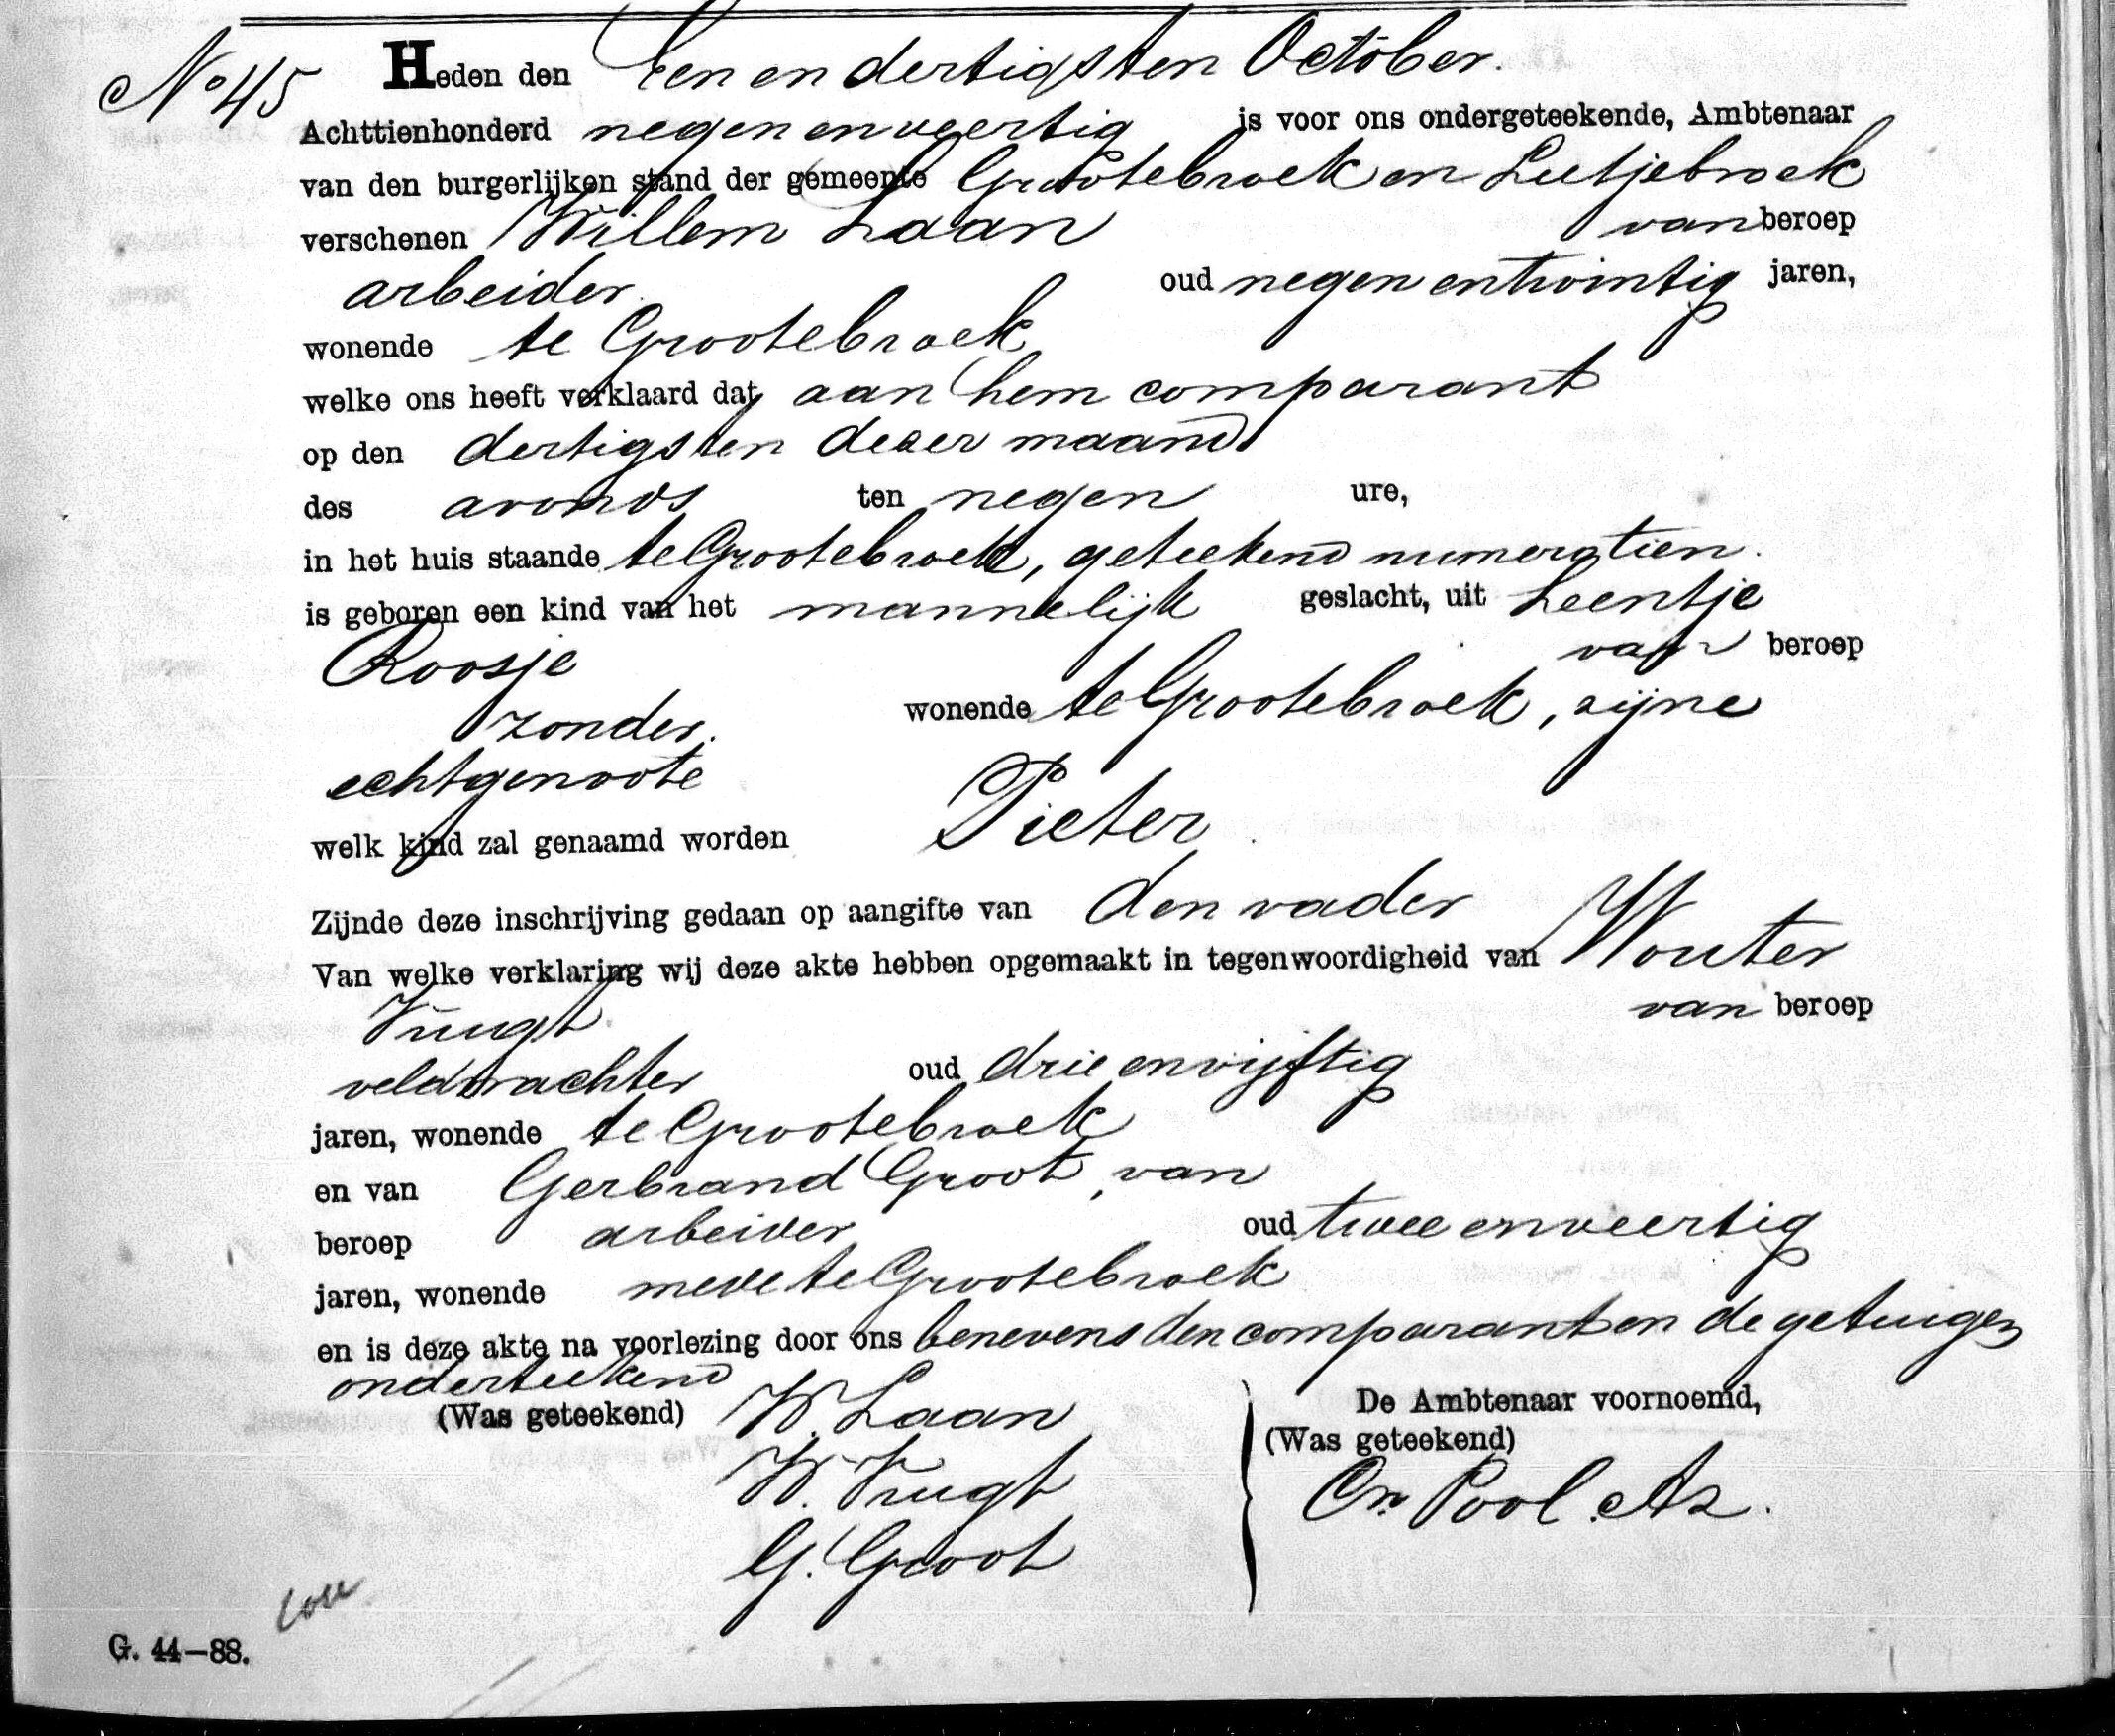 No 45 Heden den Een en dertigsten October.
Achttienhonderd negen en veertig is voor ons ondergeteekende, Ambtenaar
van den burgerlijken stand der gemeente Grootebroek en Lutjebroek
verschenen Willem Laan van beroep
arbeider. oud negen entwintig jaren,
wonende te Grootebroek
welke ons heeft verklaard dat aan hem comparant
op den dertigsten dezer maand
des avonds ten negen ure,
in het huis staande te Grootebroek, geteekend numero tien.
is geboren een kind van het mannelijk geslacht, uit Leentje
Roosje van beroep
zonder. wonende te Grootebroek, zijne
echtgenoote
welk kind zal genaamd worden Pieter.
Zijnde deze inschrijving gedaan op aangifte van den vader
Van welke verklaring wij deze akte hebben opgemaakt in tegenwoordigheid van Wouter
Vrugt van beroep
veldwachter oud drie en vijftig
jaren, wonende te Grootebroek
en van Gerbrand Groot, van
beroep arbeider oud twee en veertig
jaren, wonende mede te Grootebroek
en is deze akte na voorlezing door ons benevens den comparant en de getuigen
onderteekend
(Was geteekend) W. Laan
W. Vrugt
G. Groot
De Ambtenaar voornoemd,
(Was geteekend)
Cn. Pool Az.
G. 44—88.